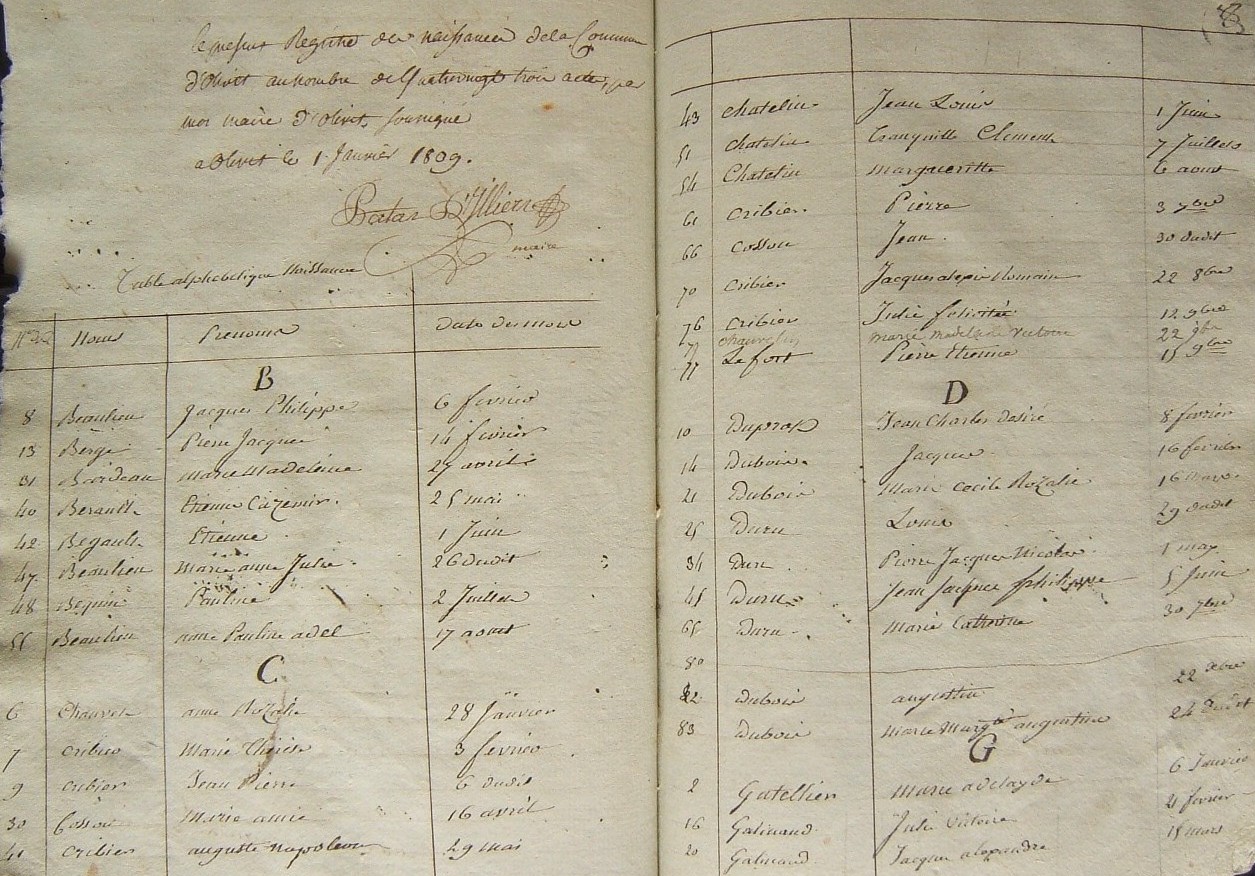 le present Registre de naissance de la Commune
d'Olivet au nombre de Quatrevingt trois actes, par
moi maire d'Olivet soussigné
a Olivet le 1 Janvier 1809.
D'Illiers
maire
Table alphabetique Naissance
Noms Prenoms Date des mois
B
8 Beaulieu Jacques Philippe 6 fevrier
13 Bergé Pierre Jacques 14 fevrier
31 Marie Madeleine 27 avril
40 Berault Etienne Cazemir 25 mai
42 Begault Etienne 1 Juin
47 Beaulieu Marie anne Julie 26 dudit
48 Bequin Pauline 2 Juillet
55 Beaulieu anne Pauline adel 17 aout
C
6 anne Rozalie 28 Janvier
7 cribier Marie Therese 3 fevrier
9 cribier Jean Pierre 6 dudit
30 Cosson Marie amie 16 avril
41 cribier auguste napoleon 29 mai
43 chatelin Jean Louis 1 Juin
51 chatelin Tranquille Clement 7 Juillet
54 Chatelin margueritte 6 aout
61 cribier Pierre 3 7bre
66 cosson Jean 30 dudit
70 cribier Jacques Romain 22 8bre
76 cribier Julie felicité 12 9bre
77 marie victoire 22 9bre
77 Lefort Pierre Etienne 15 9bre
D
10 Jean Charles desiré 8 fevrier
14 Dubois Jacques 16 fevrier
21 Dubois Marie Cecile Rozalie 16 mars
25 Duru Louis 29 dudit
34 Duru Pierre Jacques Nicolas 1 may
45 Duru Jean Jacques philippe 5 Juin
65 Duru Marie Catherine 30 7bre
80
82 Dubois augustin 22 Xbre
83 Dubois Marie Margte augustine 24 dudit
G
2 Gatellier Marie adelayde 6 Janvier
16 Galinaud Julie Victoire 21 fevrier
20 Galinaud Jacques alexandre 15 mars